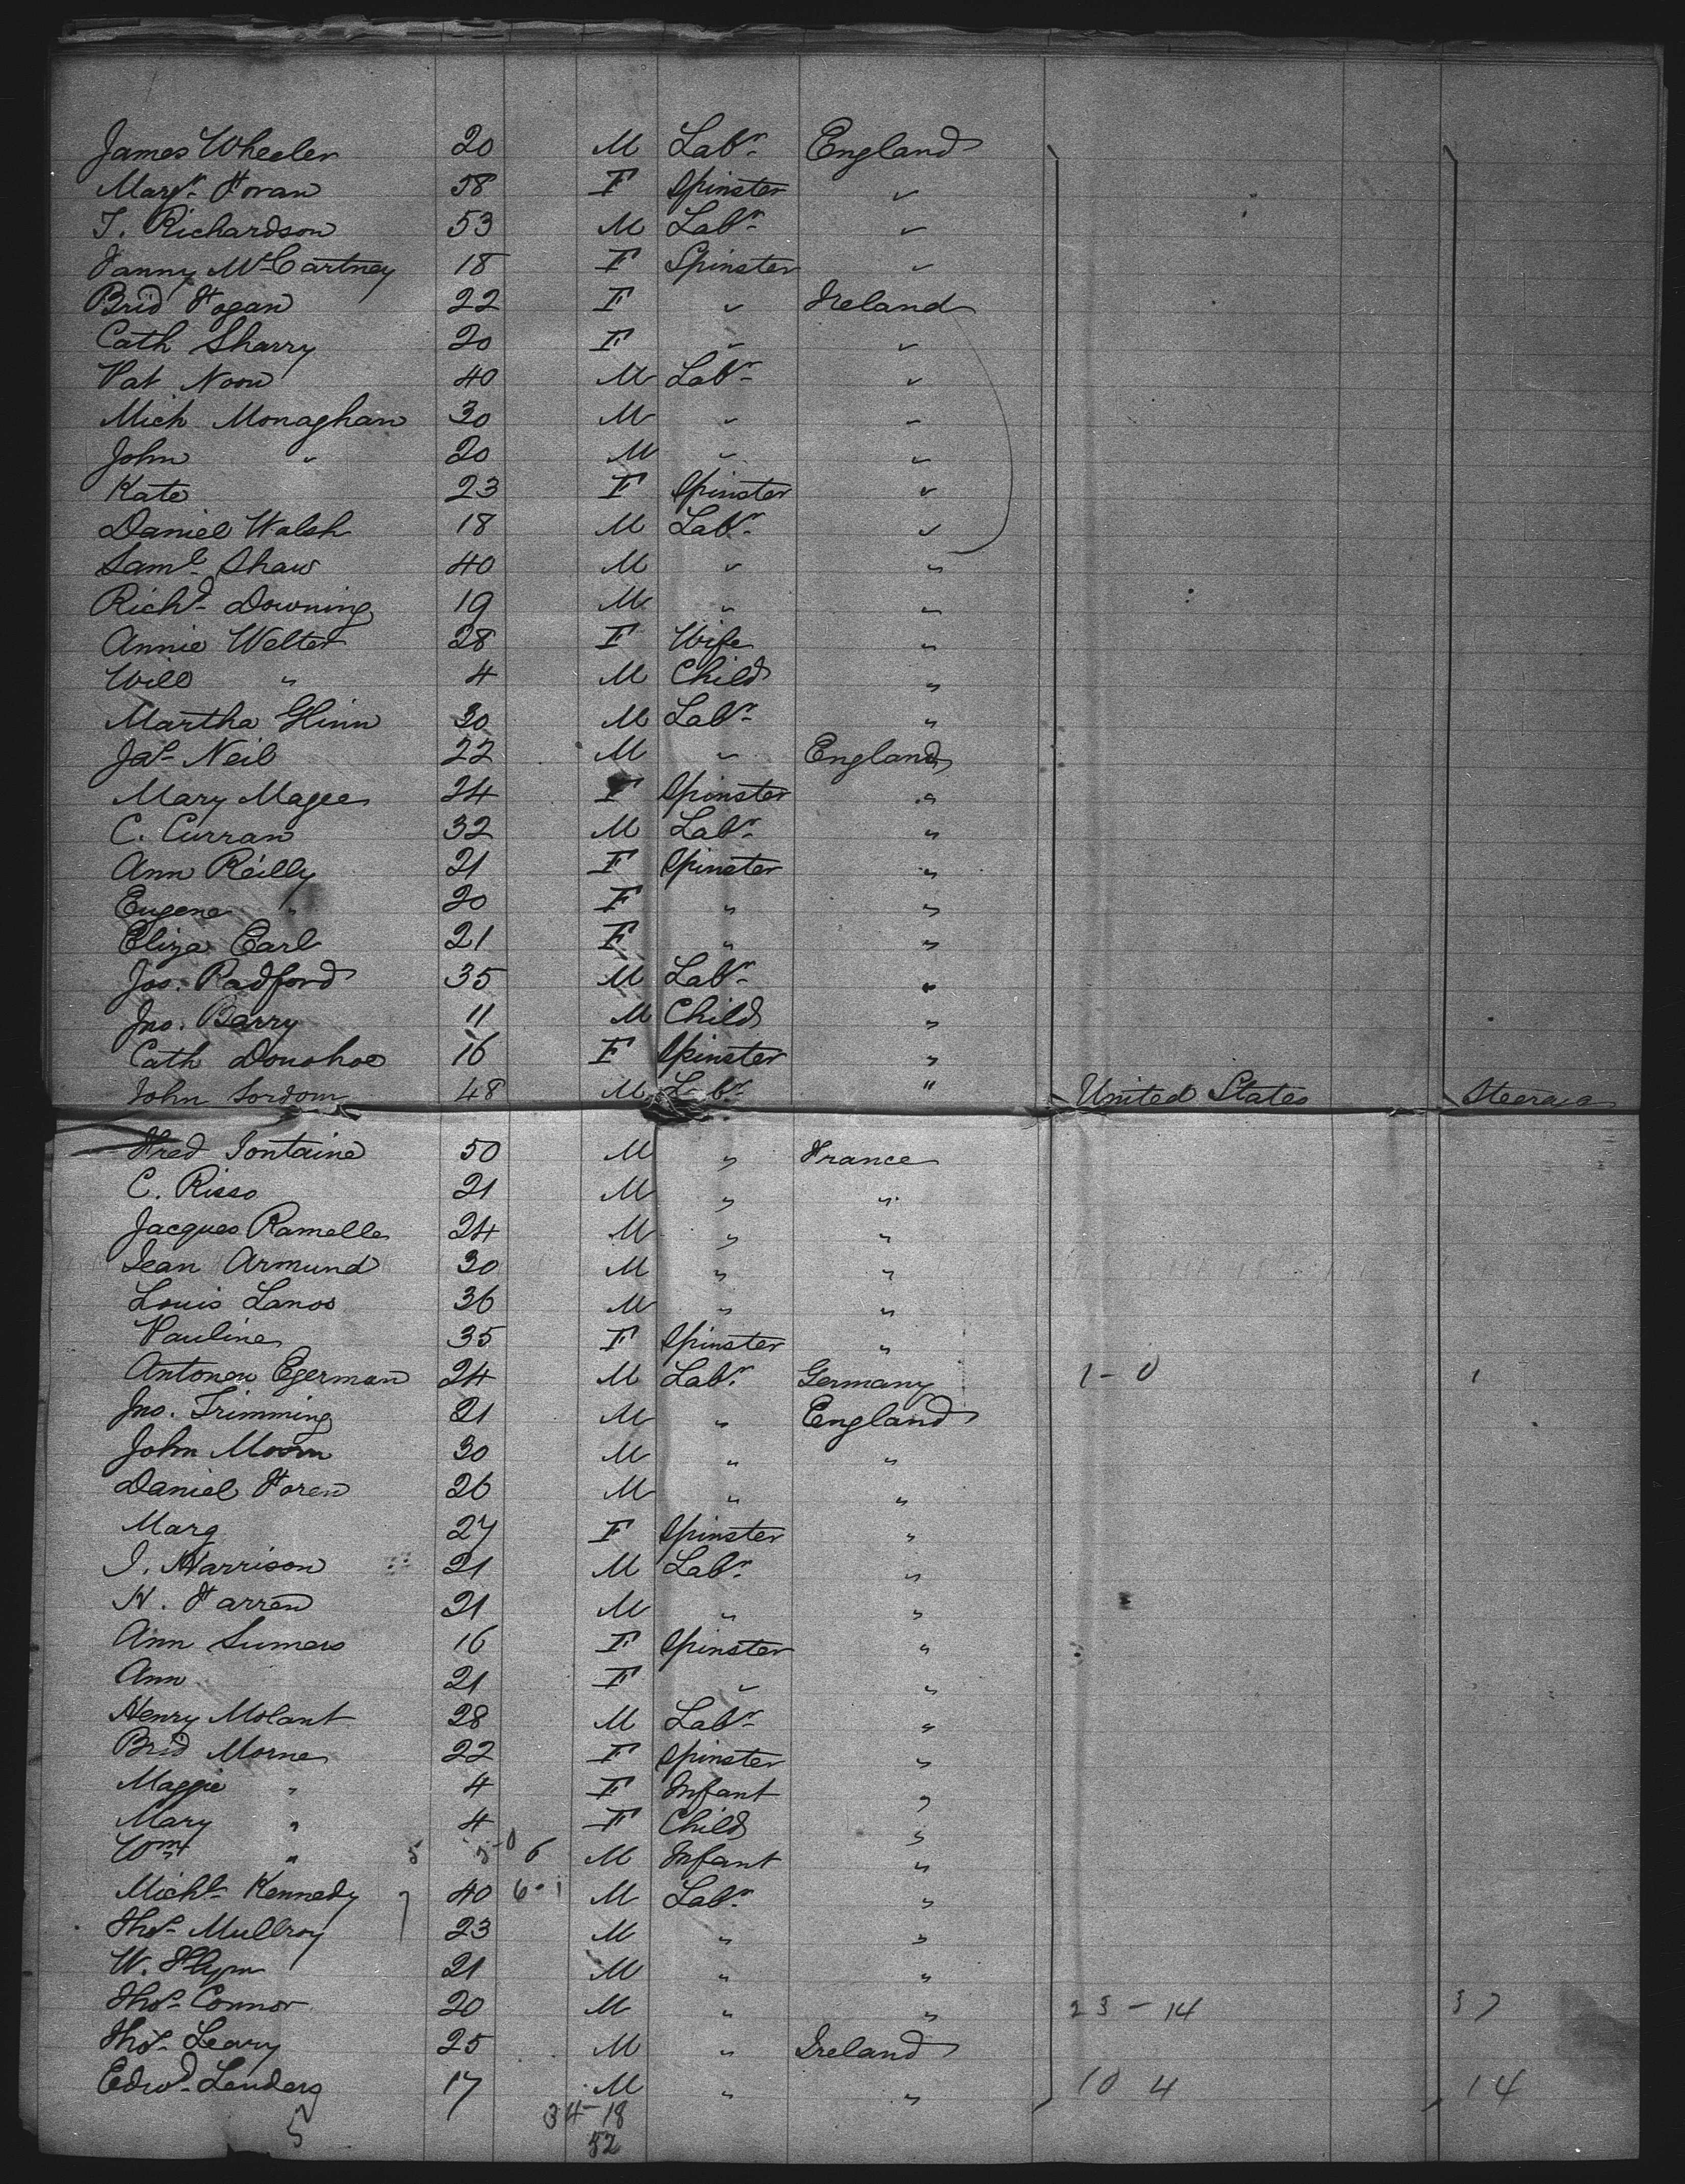 James Wheeler 20 M Labr England
Margt Foran 58 F Spinster "
T. Richardson 53 M Labr "
Fanny McCartney 18 F Spinster "
Brid Fogan 22 F " Ireland
Cath Sharry 20 F " "
Pat Noon 40 M Labr "
Mich Monaghan 30 M " "
John " 20 M " "
Kate 23 F Spinster "
Daniel Walsh 18 M Labr "
Saml Shaw 40 M " "
Richd Downing 19 M " "
Annie Welter 28 F Wife "
Will " 4 M Child "
Martha Glinn 30 M Labr "
Jas Neil 22 M " England
Mary Magee 24 F Spinster "
C. Curran 32 M Labr "
Ann Reilly 21 F Spinster "
Eugene " 20 F " "
Eliza Earl 21 F " "
Jos. Radford 35 M Labr "
Jno. Barry 11 M Child "
Cath Donohoe 16 F Spinster "
John Sordom 48 M Labr " United States Steerage
Fred Fontaine 50 M " France
C. Risso 21 M " "
Jacques Ramelle 24 M " "
Jean Armund 30 M " "
Louis Lanos 36 M " "
Pauline 35 F Spinster "
Antonen Egerman 24 M Labr Germany 1-0 1
Jno. Trimming 21 M " England
John Moorn 30 M " "
Daniel Foren 26 M " "
Marg 27 F Spinster "
J. Harrison 21 M Labr "
H. Farren 21 M " "
Ann Sumers 16 F Spinster "
Ann 21 F " "
Henry Molant 28 M Labr "
Brid Morne 22 F Spinster "
Maggie " 4 F Infant "
Mary " 4 F Child "
Wm " 5 5-0 6 M Infant "
Michl Kennedy 7 40 6-1 M Labr "
Thos Mullroy 23 M " "
W. Flynn 21 M " "
Thos Connor 20 M " " 23-14 37
Thos Leary 25 M " Ireland
Edwd Lenders 17 M " " 10 4 14
5 34-18
52